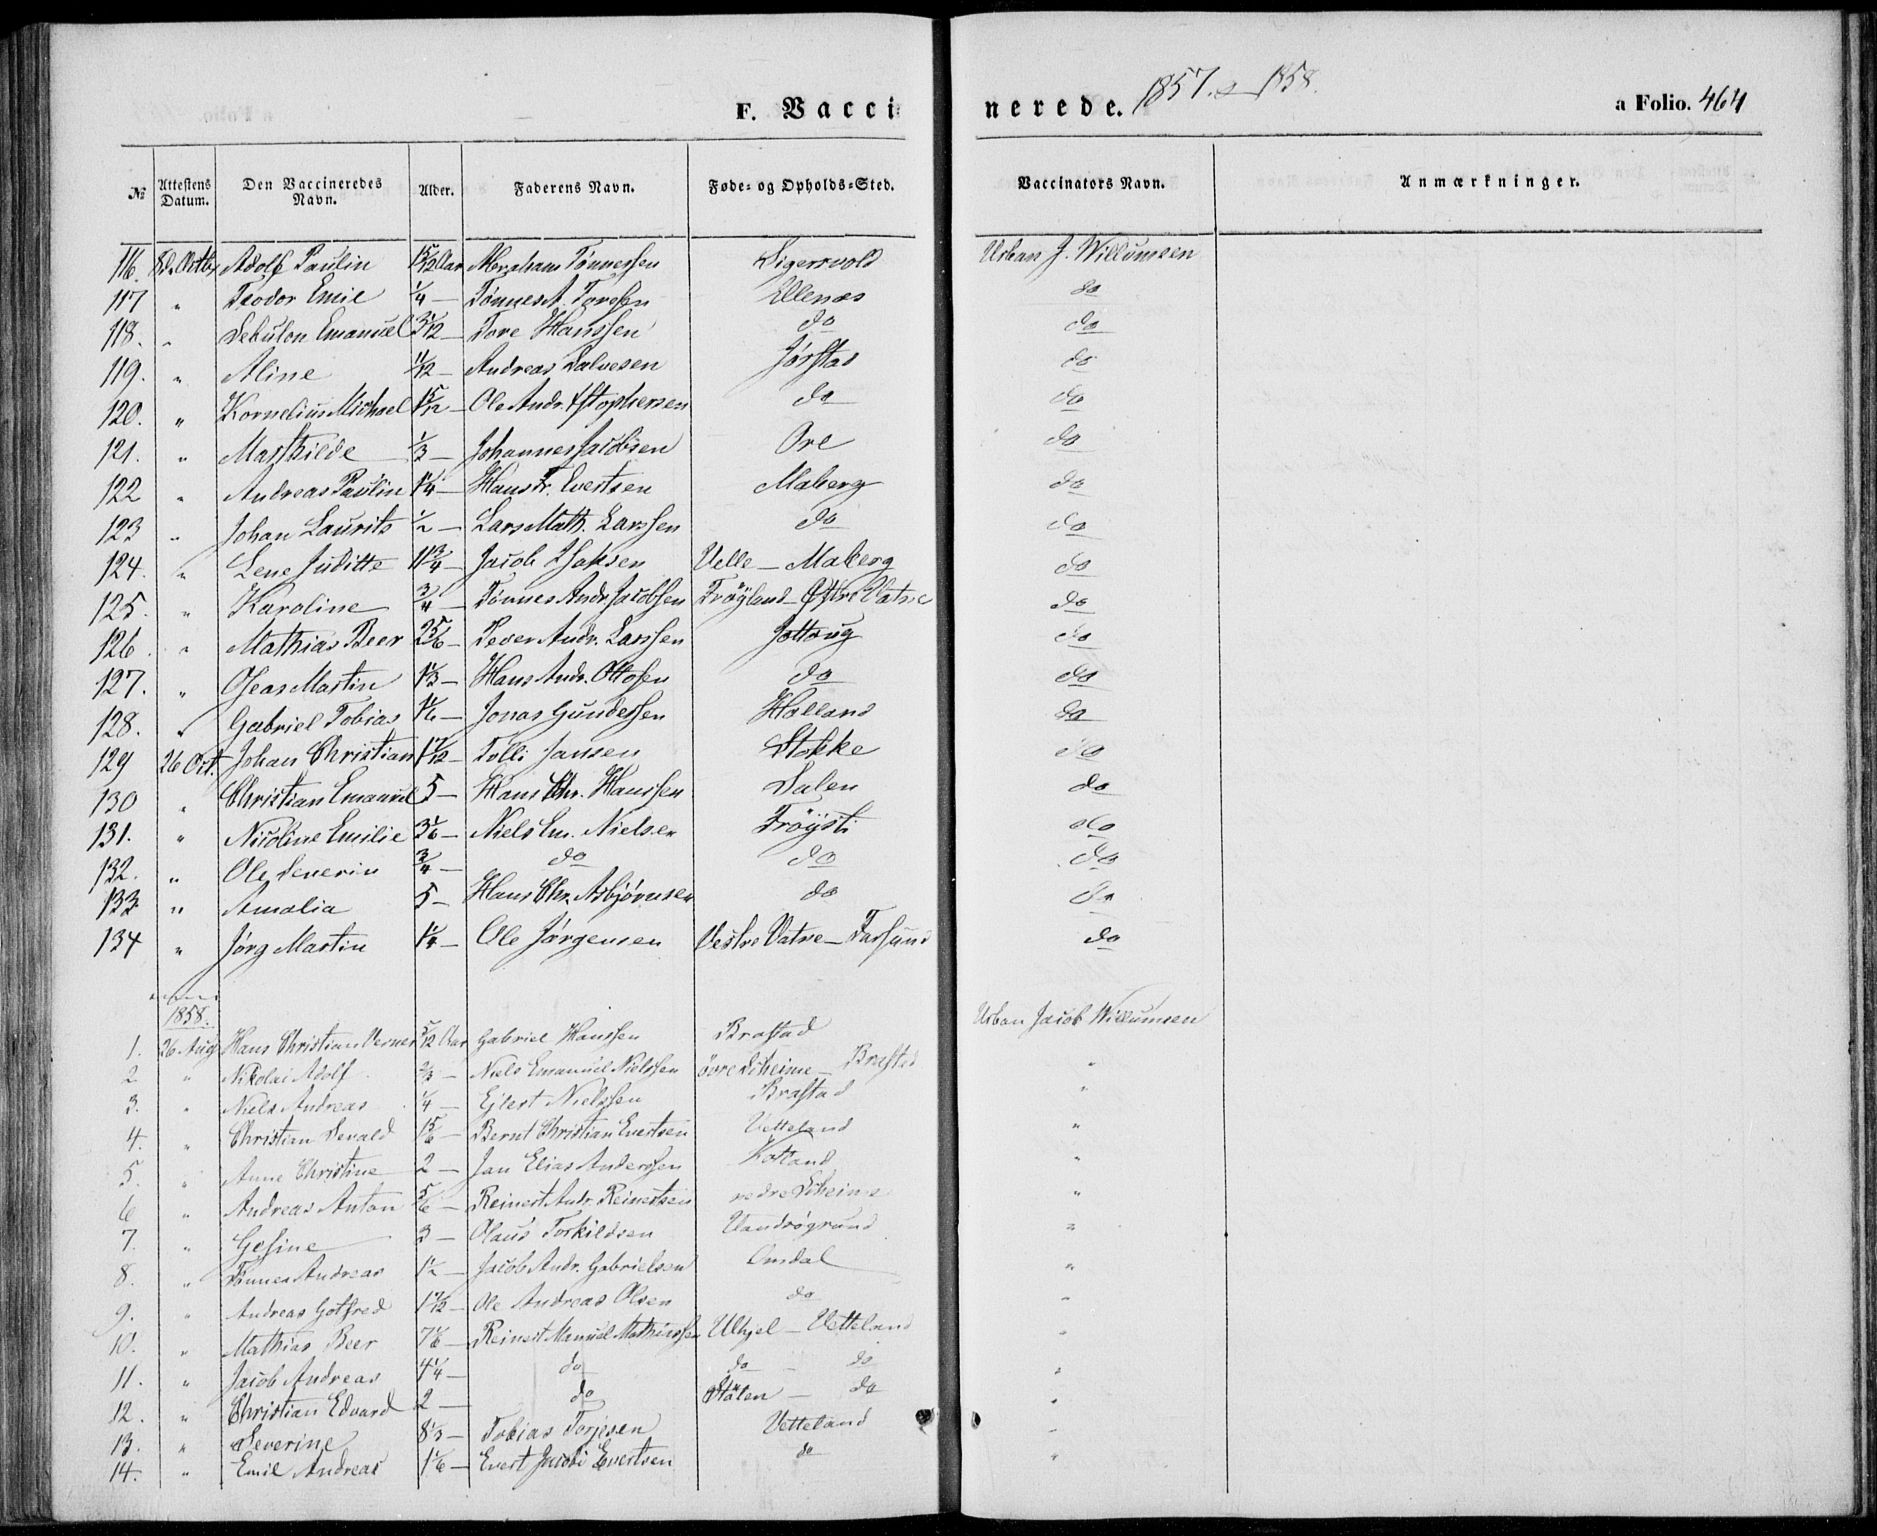 F. Vaccinerede. 1857. & 1858. a Folio. 464
№ Attestens Datum. Den Vaccineredes Navn. Alder. Faderens Navn. Føde- og Opholds-Sted. Vaccinators Navn. Anmærkninger.
116. 8de Octbr Adolf Paulin 1 5/12 Aar Abraham Tønnessen Sigersvold Urban J. Willumsen
117 " Teodor Emil 1/4 — Tønnes A. Torgsen Ellenæs do
118. " Sebulon Emanuel 3/12 — Tore Hanssen do do
119. " Aline 11/12 — Andreas Salvesen Jørstad do
120. " Kornelius Michael 1 5/12 — Ole Andr. Xstophersen do do
121. " Mathilde 1/3 — Johannes Jacobsen Ore do
122 " Andreas Paulin 1 1/4 — Hans Fr. Evertsen Maberg do
123 " Johan Laurits 1/2 — Lars Math. Larssen do do
124. " Lene Juditte 11 3/4 — Jacob Isaksen Velle — Maberg do
125. " Karoline 3/4 — Tønnes Andr. Jacobsen Frøyland — Østre Vatne do
126. " Mathias Beer 2 5/6 — Peder Andr. Larssen Jøllrug do
127. " Oseas Martin 1 1/3 — Hans Andr. Ottosen do do
128. " Gabriel Tobias 1 1/6 — Jonas Gundersen Holland do
129 26 Oct. Johan Christian 1 7/12 — Tolli Jansen Stokke do
130 " Christian Emanuel 5 — Hans Chr. Hanssen Dalen do
131. " Nicoline Emilie 3 1/6 — Niels Em. Nielsen Frøysti do
132. " Ole Severin 3/4 — do do do
133 " Amalia 5 — Hans Chr. Asbjørnsen do do
134 " Jørg Martin 1 1/4 — Ole Jørgensen Vestre Vatne — Farsund do
1858.
1. 26 Aug Hans Christian Verner 5/12 Aar Gabriel Hanssen Brastad Urban Jacob Willumsen
2 " Nikolai Adolf 2/3 — Niels Emanuel Nielssen øvre Skeime — Brastad "
3. " Niels Andreas 1/4 — Ejlert Nielssen Brastad "
4. " Christian Sevald 1 5/6 — Bernt Christian Evertsen Vetteland "
5. " Anne Christine 2 — Jan Elias Anderssen Kolland "
6 " Andreas Anton 5/6 — Reinert Andr. Reinertsen nedre Skeime "
7. " Gesine 3 — Olaus Torkildsen Vandrøgrund "
8. " Tønnes Andreas 1 1/2 — Jacob Andr. Gabrielsen Omdal "
9. " Andreas Gotfred 1 7/12 — Ole Andreas Olsen do "
10. " Mathias Beer 7 1/6 — Reinert Manuel Mathiassen Ulhjel — Vetteland "
11. " Jacob Andreas 4 1/4 — do do — do "
12. " Christian Edvard 2 — do Stølen — do "
13. " Severine 8 1/3 — Tobias Torjesen Vetteland "
14. " Emil Andreas 1 1/6 — Evert Jacobi Evertsen do "